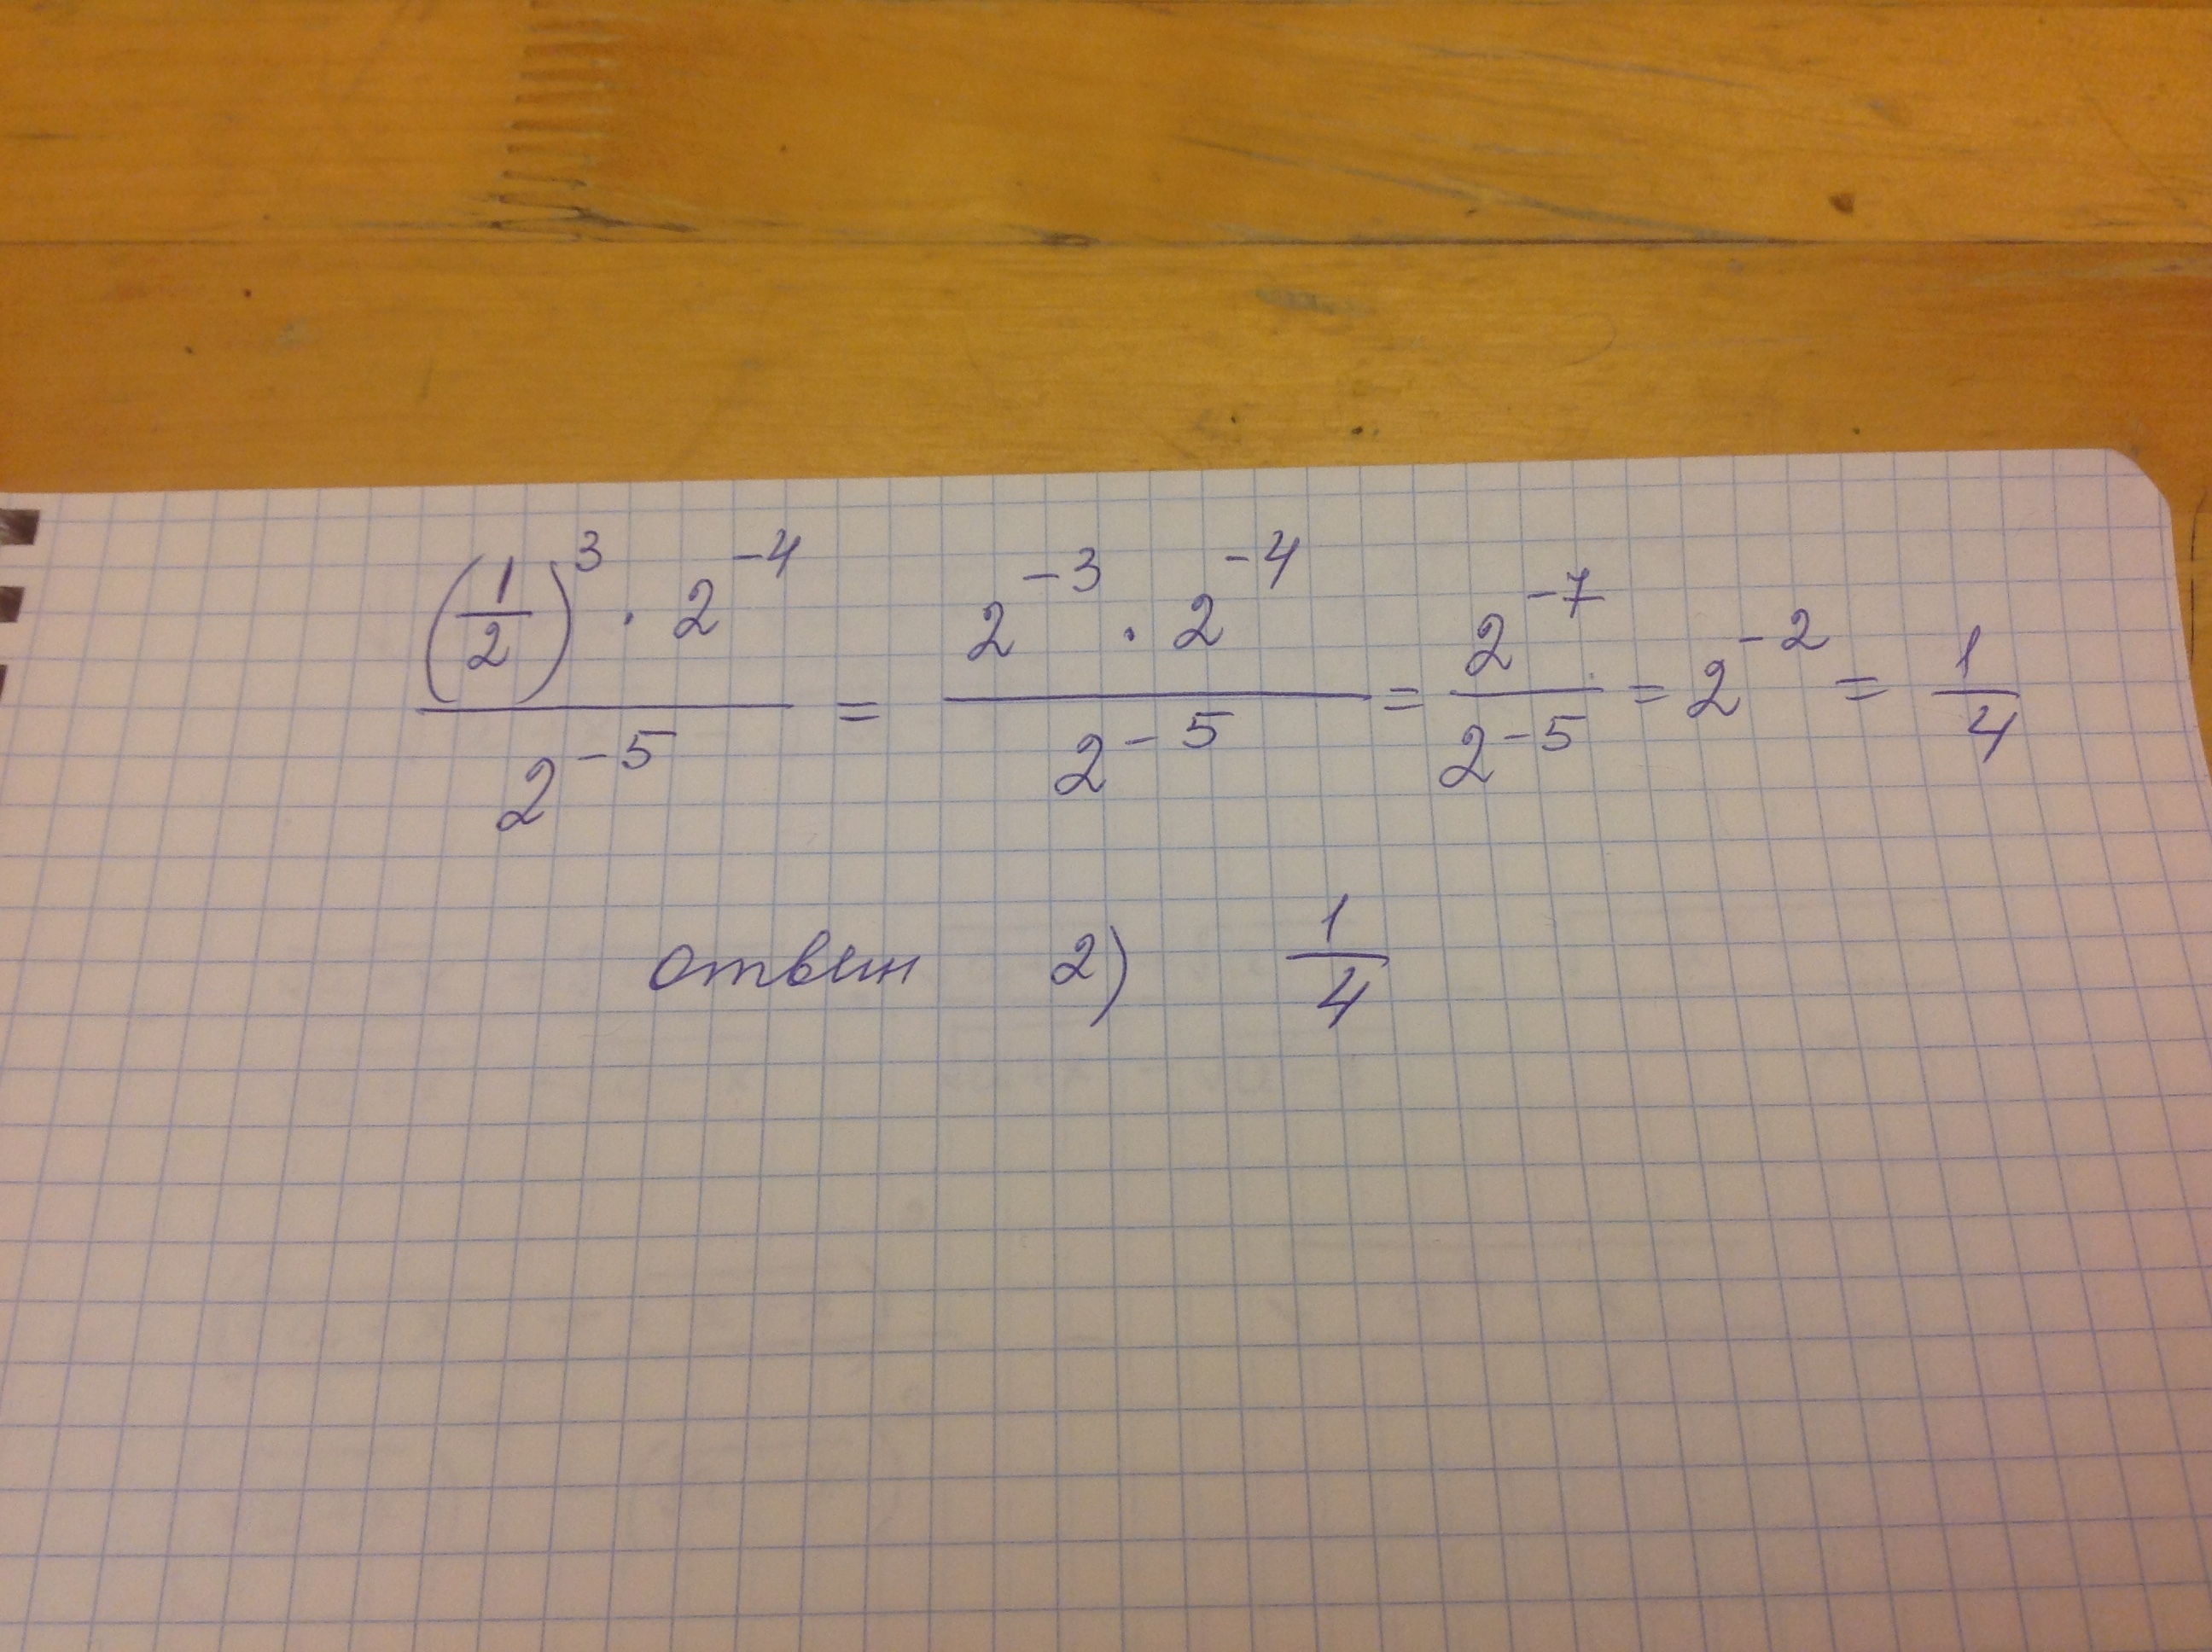 (1/2)^3 · 2^-4 / 2^-5 = 2^-3 · 2^-4 / 2^-5 = 2^-7 / 2^-5 = 2^-2 = 1/4
ответ 2) 1/4